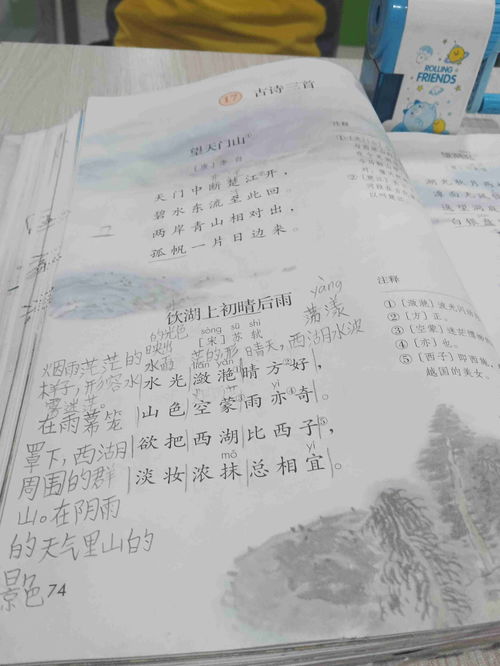 ROLLING
FRIENDS
17 古诗三首
望天门山①
[唐] 李白
天门中断楚江开，
碧水东流至此回。
两岸青山相对出，
孤帆一片日边来。
饮湖上初晴后雨
[宋] 苏轼
sòng sū shì
yàng
荡漾
水光潋滟晴方好，
山色空蒙雨亦奇。
欲把西湖比西子，
淡妆浓抹总相宜。
mǒ
yí
yì
晴天，西湖水波
烟雨茫茫的
样子，形容水
雾迷茫。
在雨幕笼
罩下，西湖
周围的群
山。在阴雨
的天气里山的
景色
74
注释
注释
湖光秋月两
潭面无风
遥望洞庭
白银盘
① [潋滟] 波光闪动
② [方] 正。
③ [空蒙]
④ [亦] 也。
⑤ [西子] 即西施，
越国的美女。